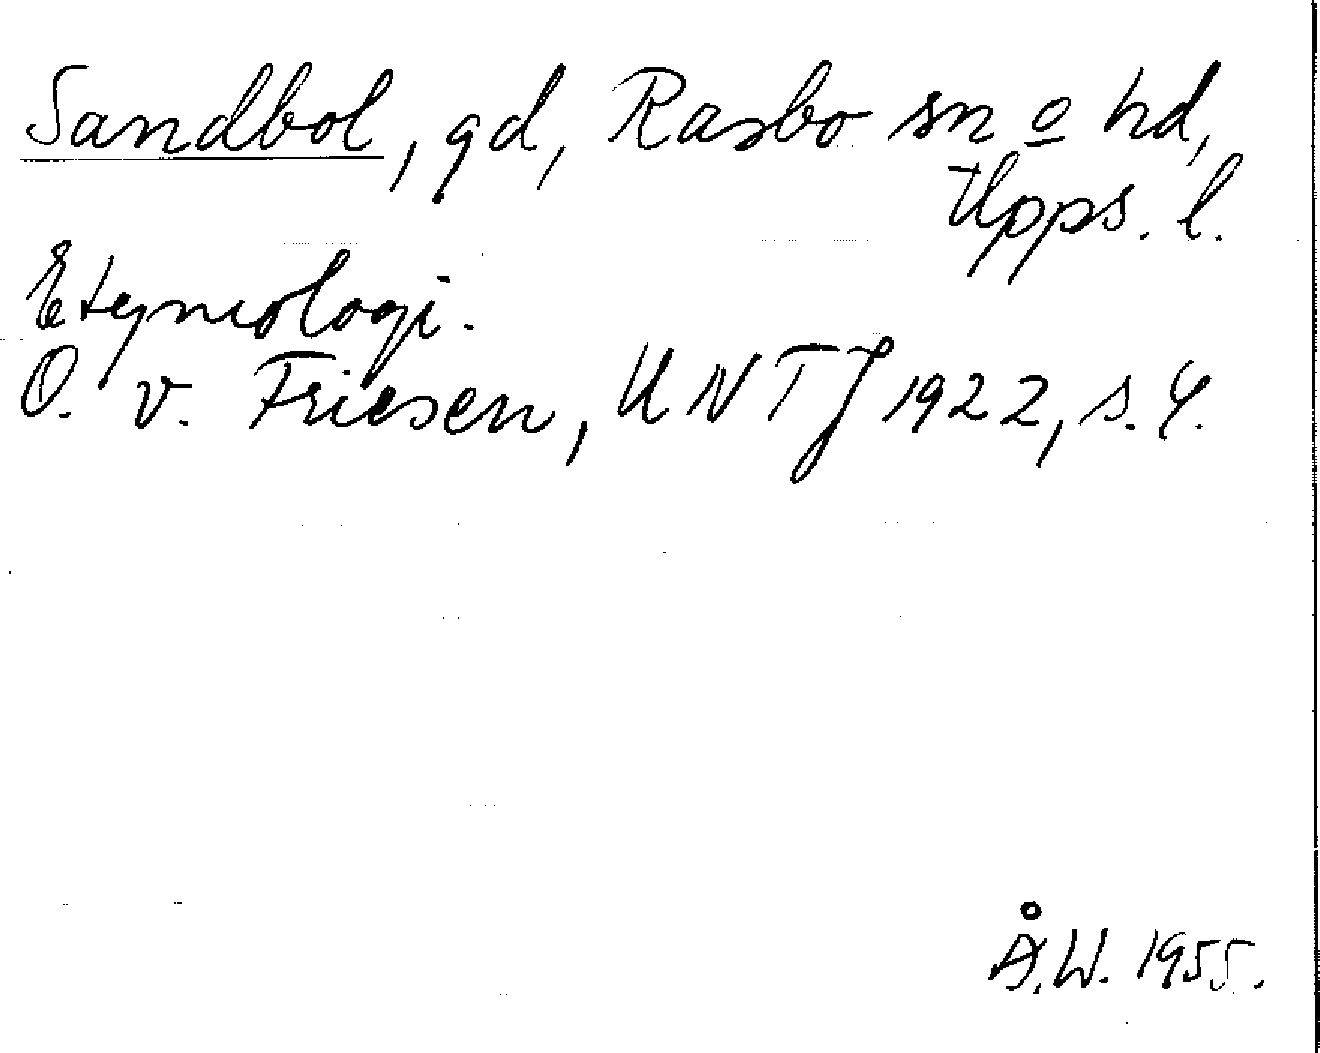 Sandbol, gd, Rasbo sn o hd,
Upps. l.
Etymologi.
O. v. Friesen, UNTJ 1922, s. 4.
Å.W. 1955.